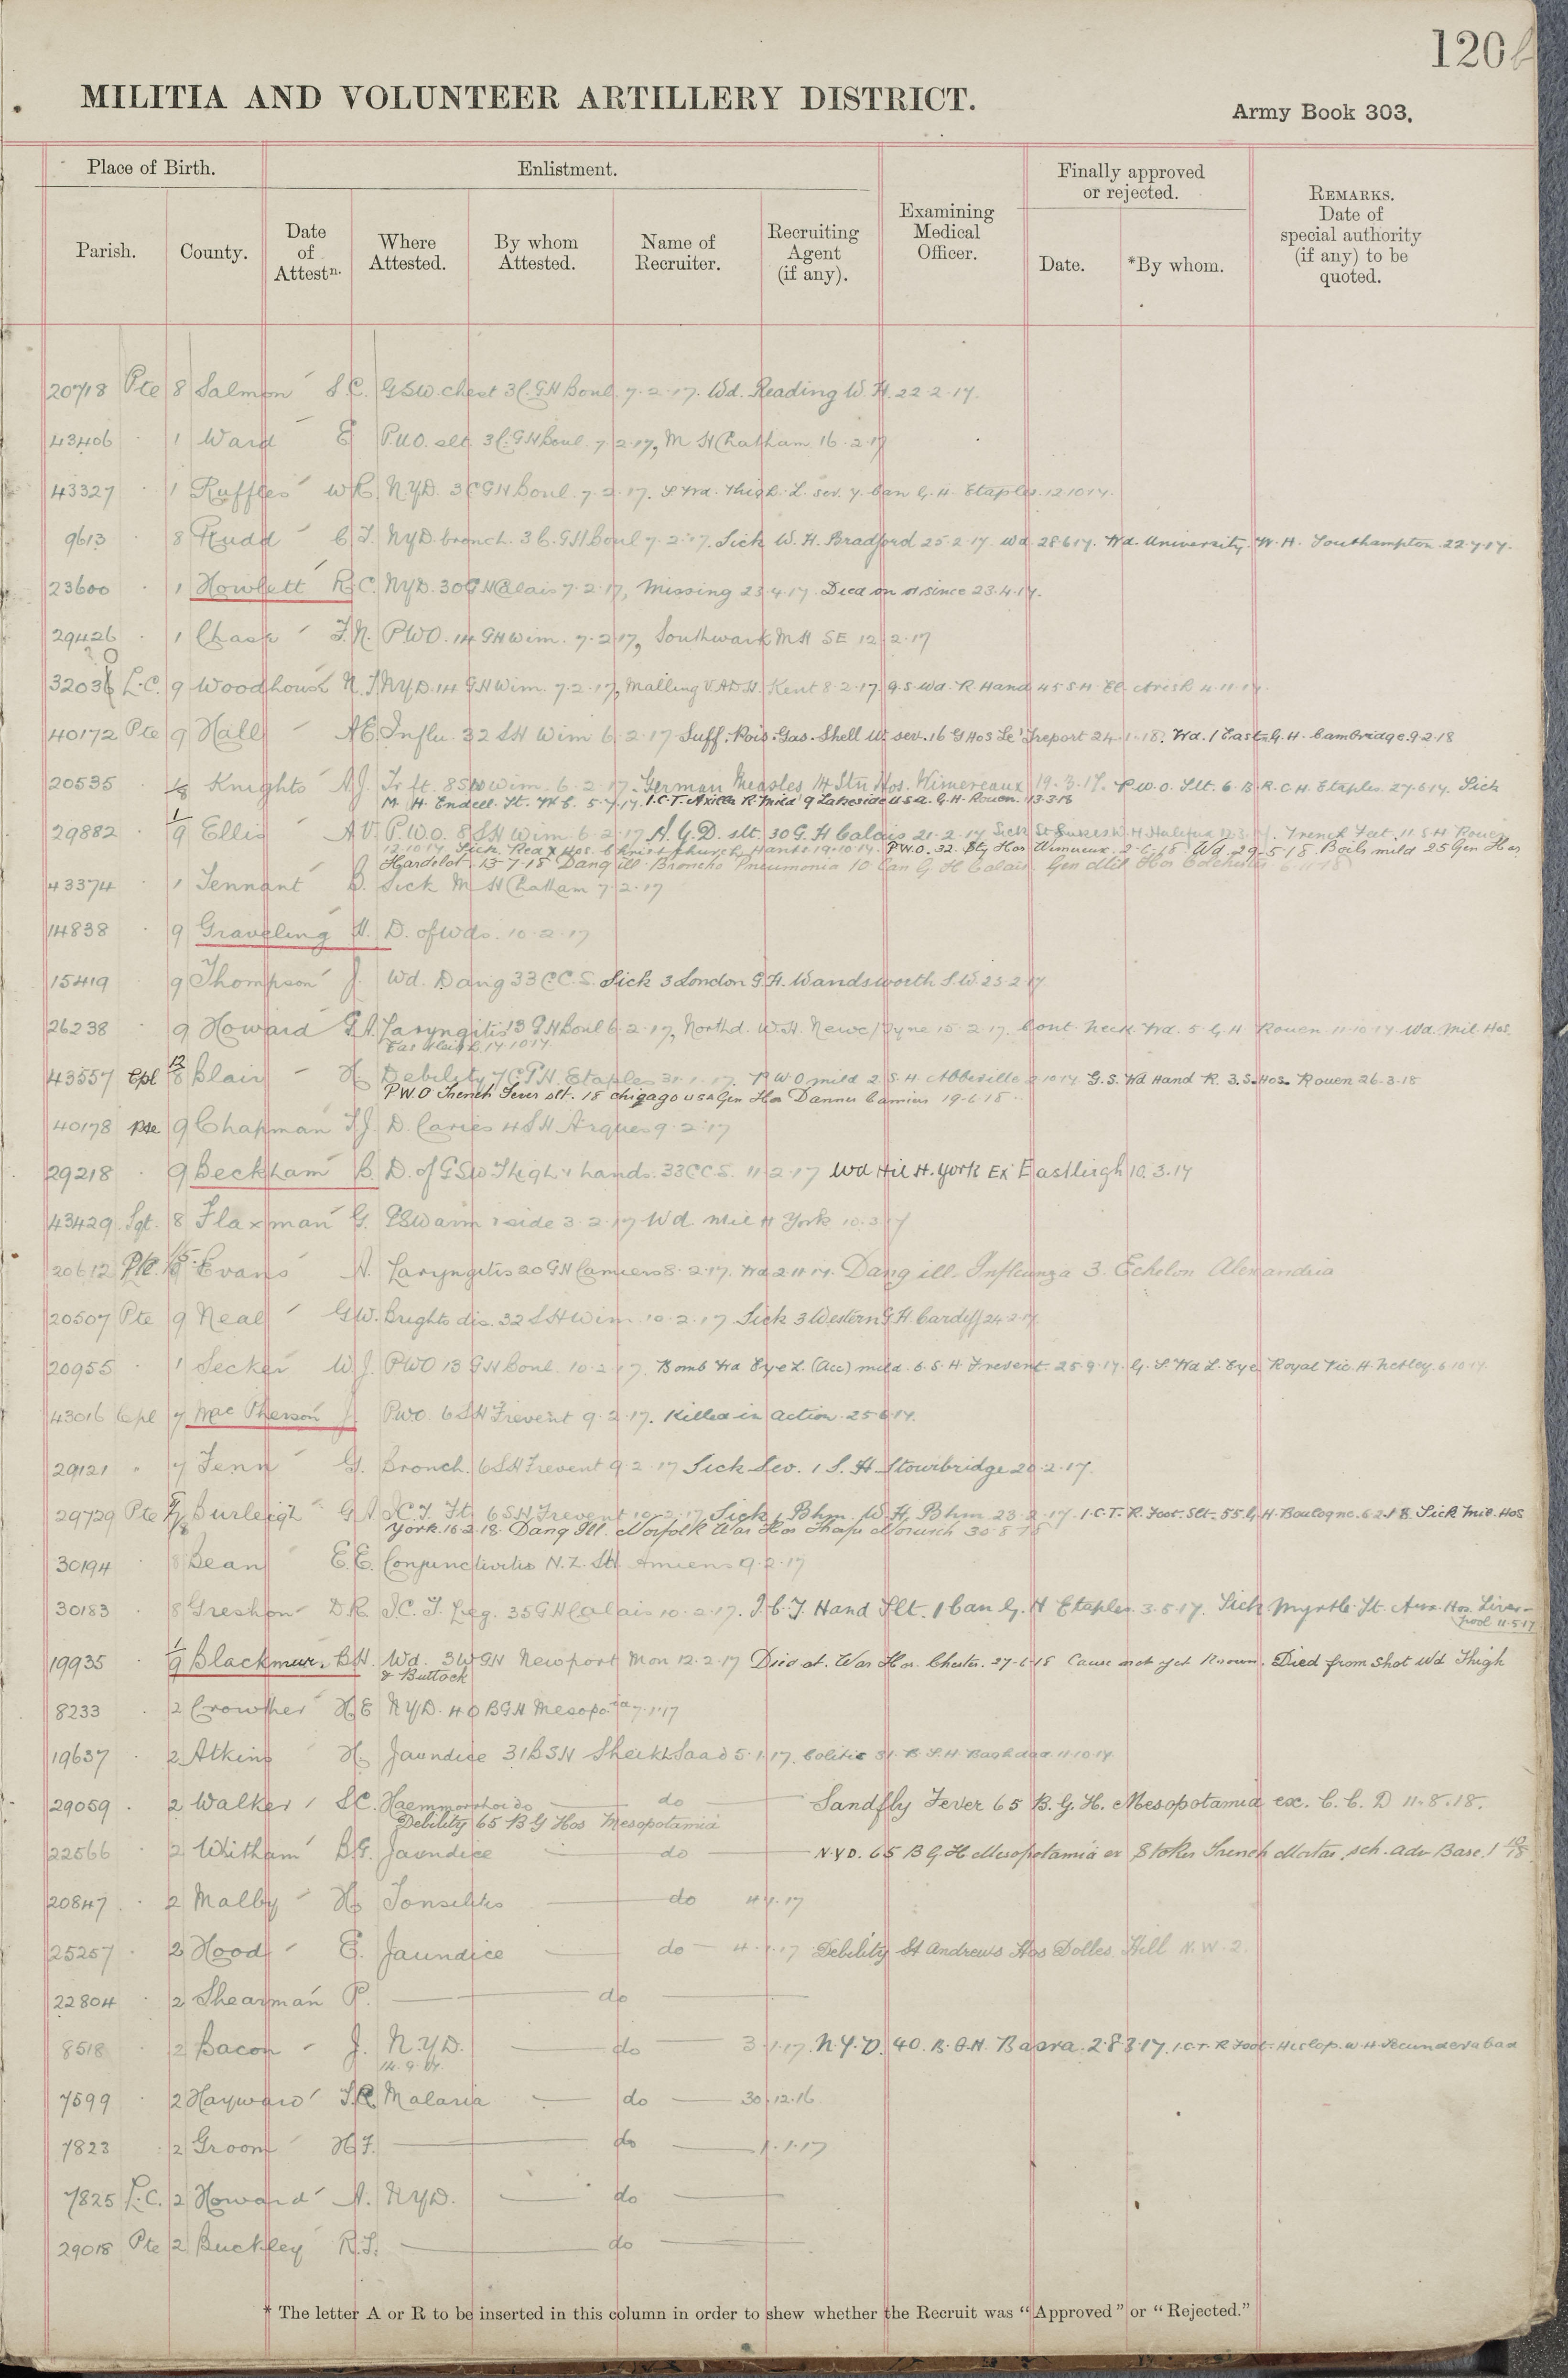 120
MILITIA AND VOLUNTEER ARTILLERY DISTRICT.
Army Book 303.
Place of Birth.
Enlistment.
Finally approved or rejected.
Parish.
County.
Date of Attestn.
Where Attested.
By whom Attested.
Name of Recruiter.
Recruiting Agent (if any).
Examining Medical Officer.
Date.
*By whom.
REMARKS. Date of special authority (if any) to be quoted.
20718 Pte 8 Salmon S.C. GSW. chest 3C. GH Boul. 7.2.17. Wd. Reading W.H. 22.2.17.
43406 1 Ward E P.U.O. slt. 3C. GH Boul. 7.2.17, M H Chatham 16.2.17
43327 1 Ruffles WR. N.Y.D. 3C GH Boul. 7.2.17. S Wd. Thigh. L. sev. 7. Can G.H. Etaples. 12.10.17.
9613 8 Rudd C.J. NYD. bronch. 3C. GH Boul 7.2.17. Sick W.H. Bradford 25.2.17. Wd 28.6.17. Wd. University. W.H. Southampton. 22.7.17.
23600 1 Howlett R.C. NYD. 30 GH Calais 7.2.17, Missing 23.4.17. Died on or since 23.4.17.
29426 1 Chase F.N. PUO. 14 GH Wim. 7.2.17, Southwark MH SE 12.2.17
32036 L.C. 9 Woodhouse N.J. NYD. 14 GH Wim. 7.2.17, Malling V.A.D.H. Kent 8.2.17. G.S. Wd. R. Hand 45 S.H. El. Arish 4.11.17.
40172 Pte 9 Hall AE. Influ. 32 SH Wim 6.2.17 Suff. Pois. Gas. Shell W. sev. 16 G Hos Le Treport 24.1.18. Wd. 1 East. G.H. Cambridge. 9.2.18
20535 1/8 Knights A.J. Tr ft. 8 SH Wim. 6.2.17. German Measles 14 Stn Hos. Wimereaux 19.3.17. P.U.O. Slt. 6. B.R.C.H. Etaples. 27.6.17. Sick
M.H. Endell. St. W.C. 5.7.17. I.C.T. Axilla R. Mild 9 Lakeside U.S.A. G.H. Rouen. 13.3.18
29882 1/9 Ellis A.V. P.U.O. 8 SH Wim 6.2.17 N.Y.D. slt. 30 G.H Calais 21.2.17 Sick St Lukes W.H. Halifax 12.3.17. Trench Feet. 11. S.H. Rouen
12.10.17. Sick. Red X Hos. Christchurch, Hants. 19.10.17. PUO. 32. Sty Hos Wimereux. 2.6.18 Wd. 29.5.18. Boils mild 25 Gen Hos
Hardelot. 13.7.18 Dang ill Broncho Pneumonia 10 Can G H Calais. Gen Mil Hos Colchester 6.11.18
43374 1 Tennant B. Sick M H Chatham 7.2.17
14838 9 Graveling H. D. of Wds. 10.2.17
15419 9 Thompson J. Wd. Dang 33 C.C.S. Sick 3 London G.H. Wandsworth S.W. 25.2.17
26238 9 Howard G.A. Laryngitis 13 GH Boul 6.2.17, Northd. W.H. Newc/Tyne 15.2.17. Cont. Neck Wd. 5. G.H. Rouen 11.10.17 Wd. Mil. Hos.
Eastleigh 14.10.17
43557 Cpl 12/8 Blair H. Debility 7 C GH. Etaples 31.1.17. P.U.O mild 2. S.H. Abbeville 2.10.17 G.S. Wd Hand R. 3. S. Hos. Rouen 26.3.18
P.U.O Trench Fever slt. 18 Chicago USA Gen Hos Dannes Camiers 19.6.18
40178 Pte 9 Chapman T.J. D. Caries 4 SH Arques 9.2.17
29218 9 Beckham B. D. of GSW Thigh & hands. 33 CCS. 11.2.17 Wd Mil H. York Ex Eastleigh 10.3.17
43429 Sgt. 8 Flaxman G. GSW arm & side 3.2.17 Wd Mil H York 10.3.17
20612 Pte. Evans A. Laryngitis 20 GH Camiers 8.2.17. Wd 2.11.17. Dang ill Influenza 3. Echelon Alexandria
20507 Pte 9 Neal GW. Brights dis. 32 SH Wim 10.2.17 Sick 3 Western G.H. Cardiff 24.2.17
20955 1 Secker W.J. PUO 13 GH Boul. 10.2.17. Bomb Wd Eye L. (Acc) mild. 6. S.H. Frevent. 25.9.17. G.S. Wd L. Eye Royal Vic. H. Netley. 6.10.17.
43016 Cpl 7 MacPherson J. PUO. 6 SH Frevent 9.2.17. Killed in action. 25.6.17.
29121 7 Fenn G. Bronch. 6 SH Frevent 9.2.17 Sick Sev. 1 S. H Stourbridge 20.2.17.
29729 Pte Burleigh G.A. I.C.T. Ft. 6 SH Frevent 10.2.17 Sick 1 Bhm. W.H. Bhm 23.2.17. I.C.T. R. Foot. Slt. 55. G.H. Boulogne. 6.2.18. Sick Mil. Hos
York. 16.2.18. Dang Ill. Norfolk War Hos Thorpe Norwich 30.8.18
30194 8 Bean E.E. Conjunctivitis N.Z. SH Amiens 9.2.17
30183 8 Greshon D.R. I.C.T. Leg. 35 GH Calais 10.2.17. I.C.T. Hand Slt. 1 Can G. H Etaples. 3.5.17. Sick. Myrtle. St. Aux. Hos. Liver-
pool 11.5.17
19935 1/9 Blackmur. B.H. Wd. 3 W GH Newport Mon 12.2.17 Died at. War Hos. Chester. 27.6.18 Cause not yet known. Died from Shot Wd Thigh
& Buttock
8233 2 Crowther H.E NYD. 40 BGH Mesopota 7.1.17
19637 2 Atkins H. Jaundice 31 B SH Sheikh Saad 5.1.17. Colitis 31. B.S.H. Baghdad. 11.10.17.
29059 2 Walker S.C. Haemmorrhoids do Sandfly Fever 65 B.G.H. Mesopotamia ex. C.C.D 11.8.18.
Debility 65 B G Hos Mesopotamia
22566 2 Whitham B.G. Jaundice do N.Y.D. 65 B G H Mesopotamia ex Stokes Trench Mortar sch. adv Base. 1 10/18
20847 2 Malby H. Tonsilitis do 4.1.17
25257 2 Hood E. Jaundice do 4.1.17 Debility St Andrews Hos Dolles Hill N.W.2.
22804 2 Shearman P. do
8518 2 Bacon J. N.Y.D. do 3.1.17. N.Y.D. 40. B.G.H. Basra. 28.3.17. I.C.T. R Foot. Hislop. W.H. Secunderabad
14.9.17.
7599 2 Hayward Malaria do 30.12.16
7823 2 Groom H.F. do 1.1.17
7825 L.C. 2 Howard A. NYD. do
29018 Pte 2 Buckley R.J. do
* The letter A or R to be inserted in this column in order to shew whether the Recruit was “Approved” or “Rejected.”